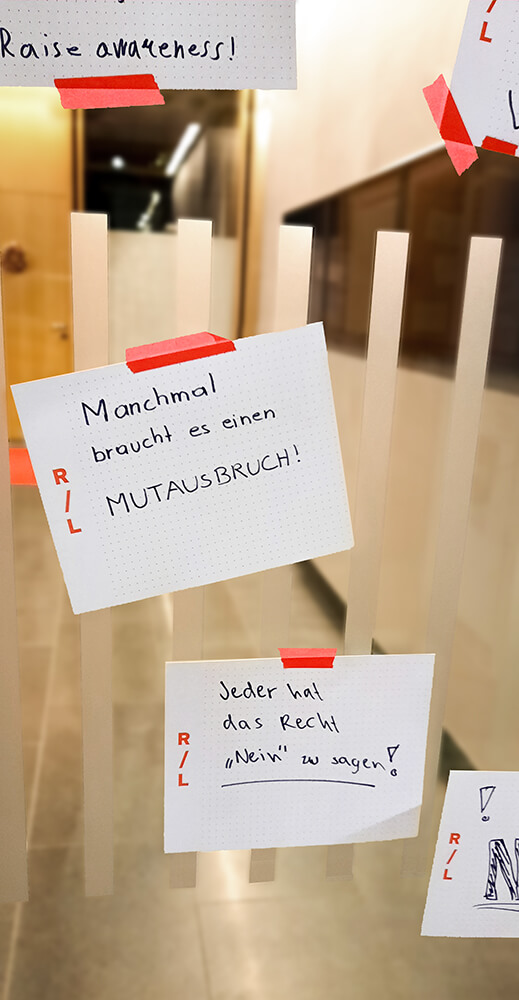 Raise awareness!
R/L
Manchmal
braucht es einen
MUTAUSBRUCH!
R/L
Jeder hat
das Recht
„Nein" zu sagen!
R/L
!
R/L